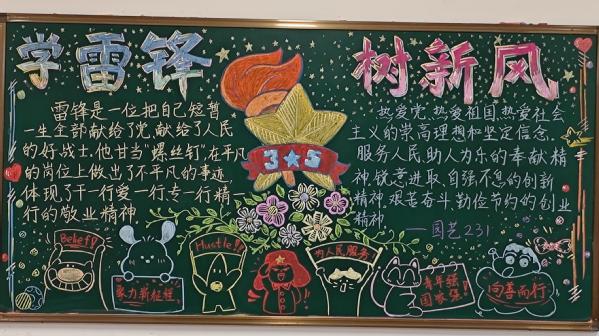 学雷锋 树新风
3★5
雷锋是一位把自己短暂
一生全部献给了党,献给了人民
的好战士,他甘当"螺丝钉"在平凡
的岗位上做出了不平凡的事迹
体现了干一行爱一行,专一行精一
行的敬业精神
热爱党、热爱祖国、热爱社会
主义的崇高理想和坚定信念,
服务人民、助人为乐的奉献精
神,锐意进取、自强不息的创新
精神,艰苦奋斗、勤俭节约的创业
精神
——园艺231
Belief!
聚力新征程
Hustle!!
为人民服务!
青年强
国家强!
向善而行